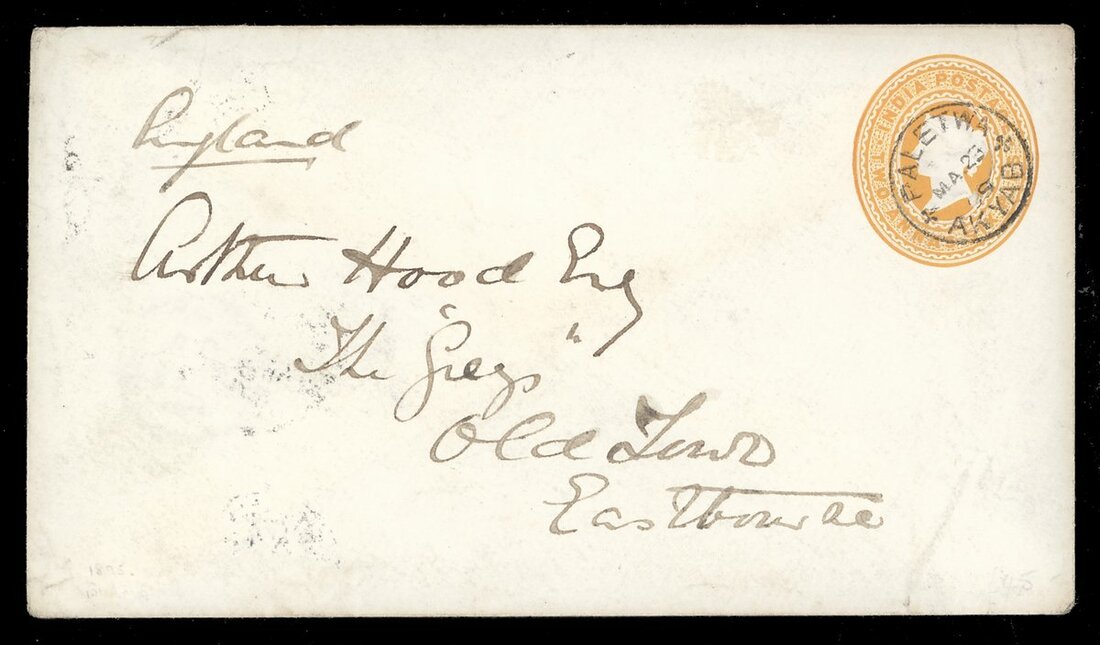 England
Arthur Hood Esq
"The Greys"
Old Town
Eastbourne
INDIA POSTAGE
PALETWA
MA 25
AKYAB
1895.